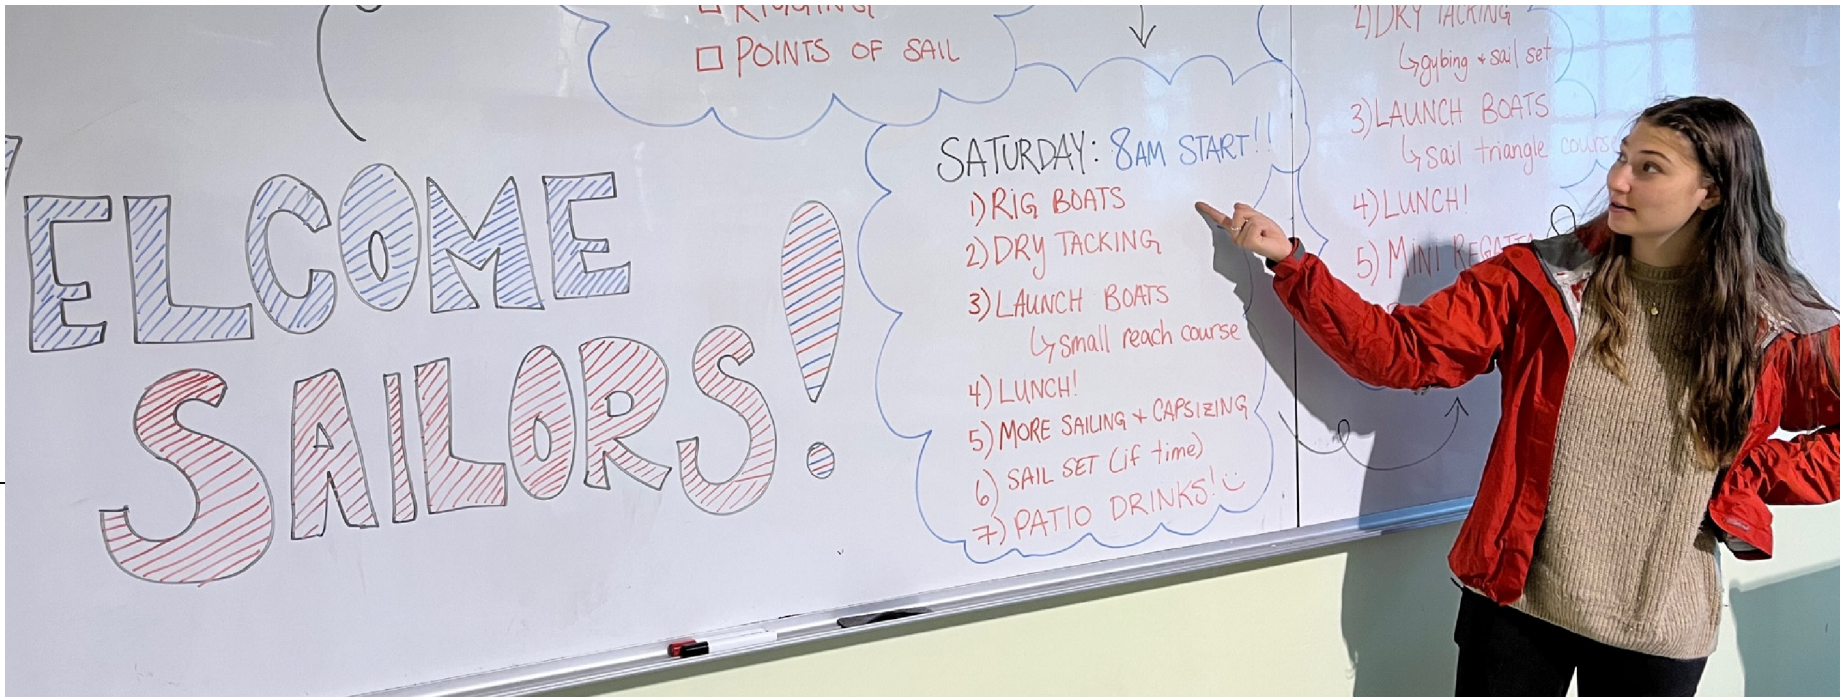 WELCOME
SAILORS!
RIGGING
POINTS OF SAIL
SATURDAY: 8AM START!!
1) RIG BOATS
2) DRY TACKING
3) LAUNCH BOATS
↳ small reach course
4) LUNCH!
5) MORE SAILING + CAPSIZING
6) SAIL SET (if time)
7) PATIO DRINKS!
2) DRY TACKING
↳ gybing + sail set
3) LAUNCH BOATS
↳ sail triangle course
4) LUNCH!
5) MINI REGATTA